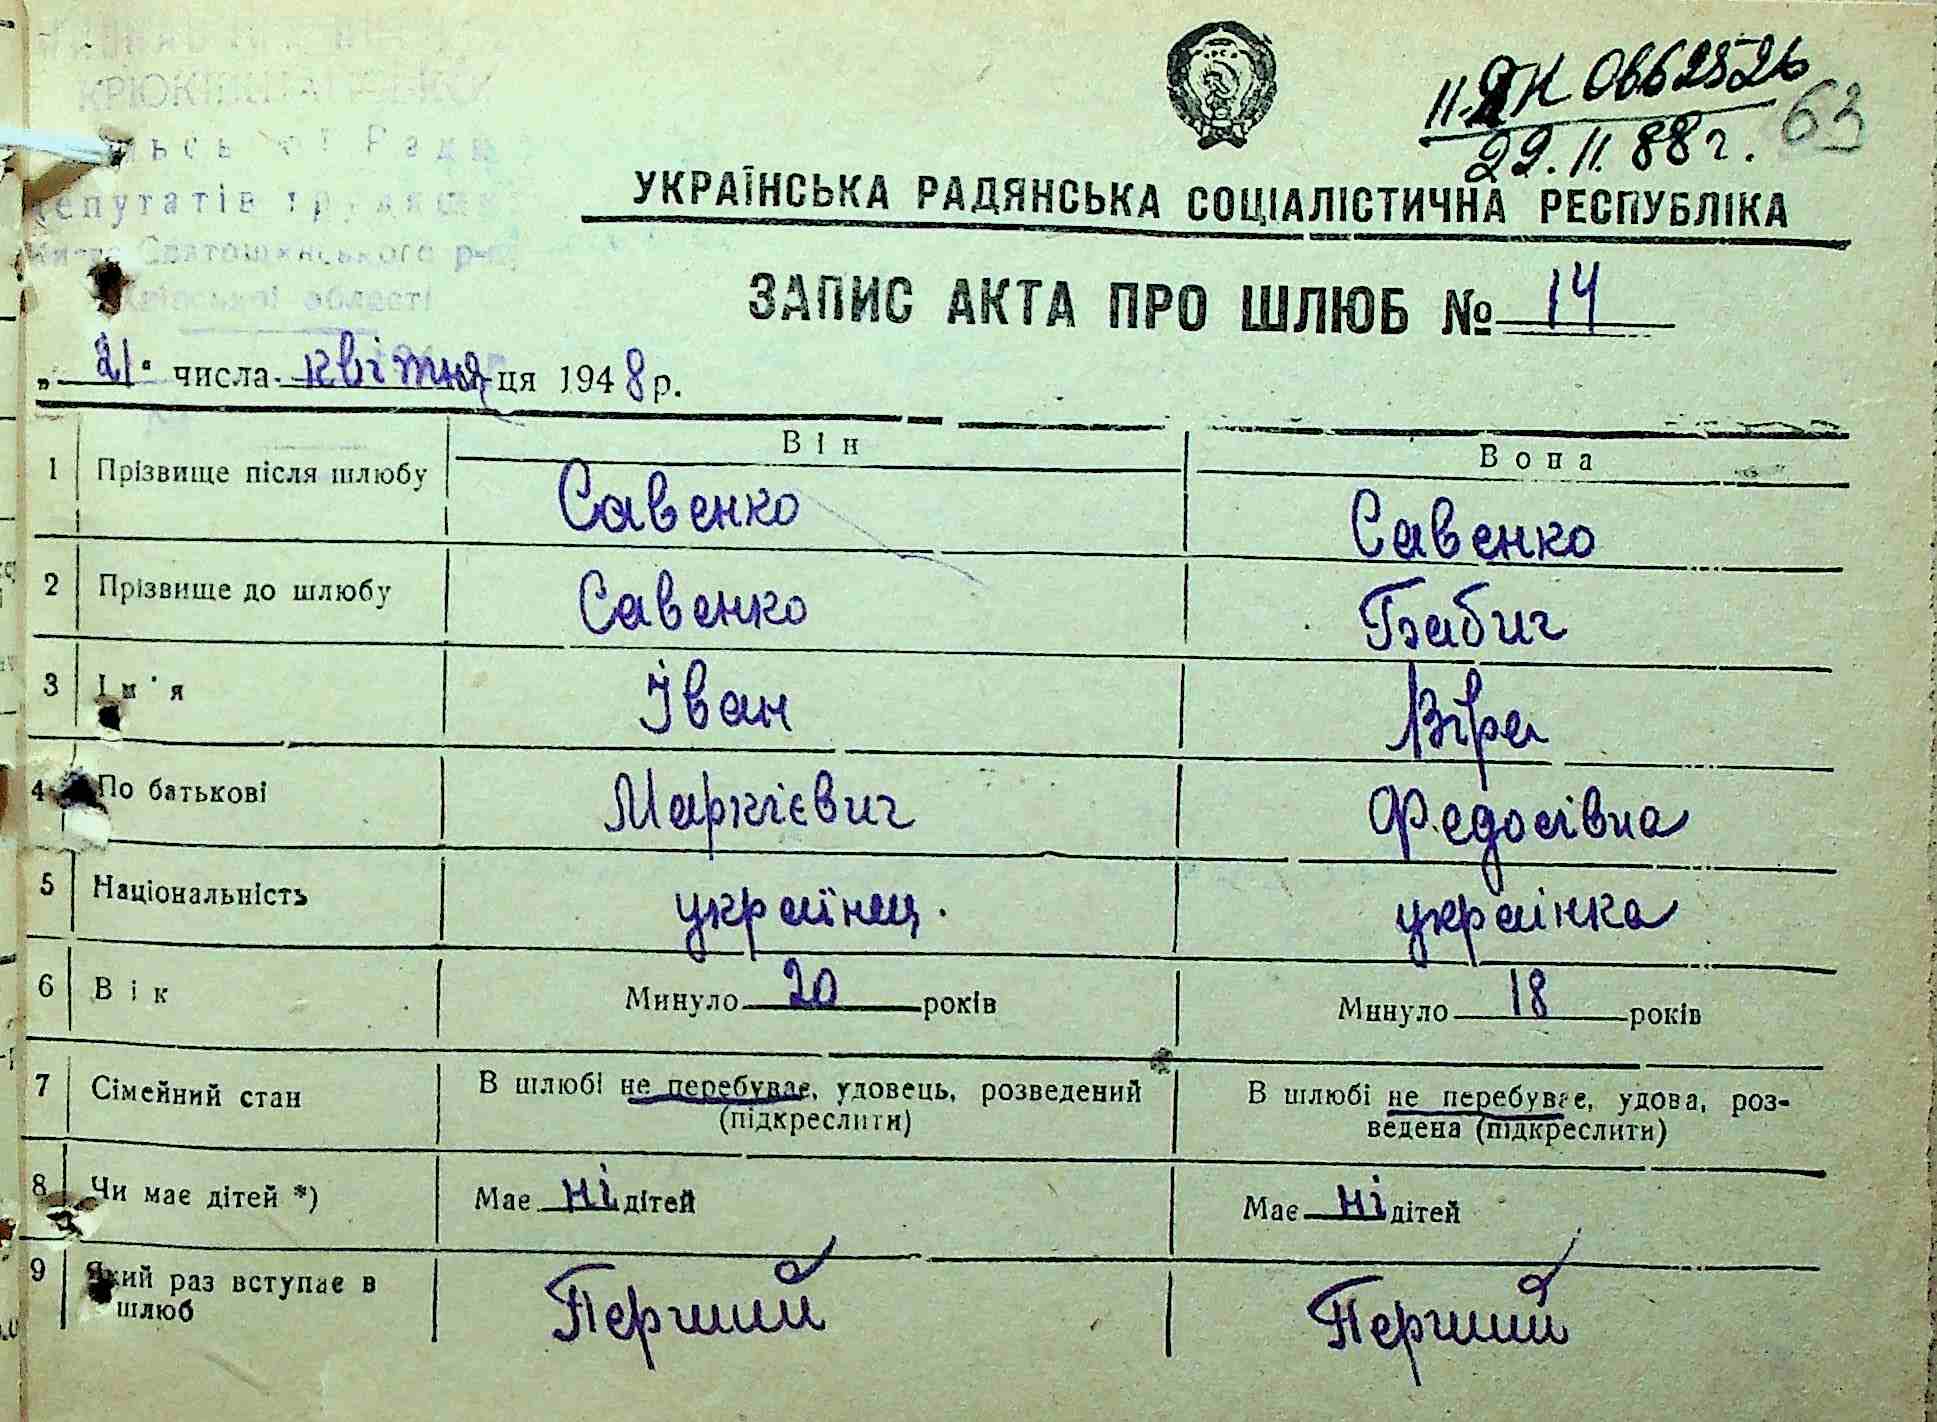 КРЮКІВЩАНСЬКОЇ
Ради
депутатів трудящих
Києво Святошинського р-ну
Київської області
II-ЯК 0662526
29.11.88г. 63
УКРАЇНСЬКА РАДЯНСЬКА СОЦІАЛІСТИЧНА РЕСПУБЛІКА
ЗАПИС АКТА ПРО ШЛЮБ № 14
„21" числа квітня ця 1948 р.
Він Вона
1 Прізвище після шлюбу Савенко Савенко
2 Прізвище до шлюбу Савенко Бабич
3 Ім'я Іван Віра
4 По батькові Маркієвич Федосівна
5 Національність українец. українка
6 Вік Минуло 20 років Минуло 18 років
7 Сімейний стан В шлюбі не перебуває, удовець, розведений В шлюбі не перебуває, удова, роз-
(підкреслити) ведена (підкреслити)
8 Чи має дітей *) Має ні дітей Має ні дітей
9 Який раз вступає в
шлюб Перший Перший